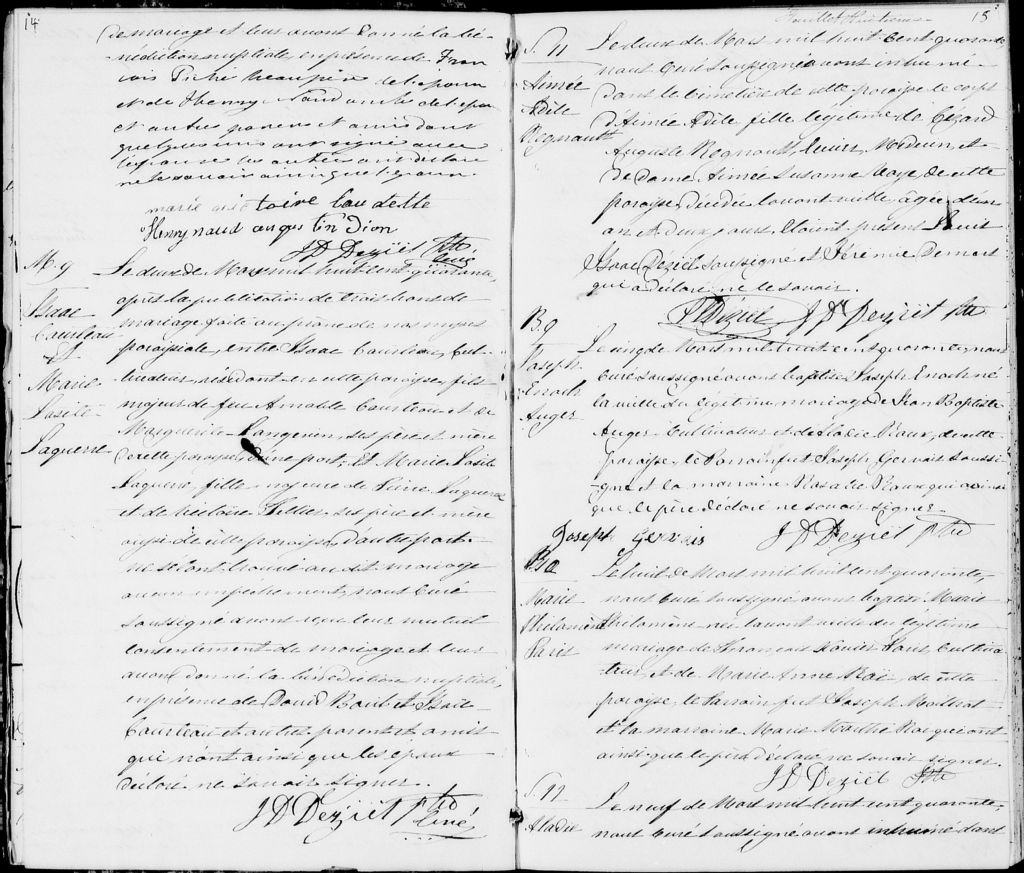 14
de mariage et leur avons donné la bé-
nédiction nuptiale, en présence de Fran
çois Piché beaupère de l'épouse
et de Henry Naud oncle de l'epou
et autres parens et amis dont
quelques uns ont signé avec
l'épouse les autres ont déclaré
ne le savoir ainsi que l'epoux.
marie victoire Gaudette
Henry naud
J D Deziel Ptre
Curé
M. 9
Isaac
Courteau
&
Marie
Basile
Laquerre
Le deux de Mars mil huit cent quarante,
après la publication de trois bans de
mariage faite au prône de nos messes
paroissiale, entre Isaac Courteau, Cul-
tivateur, résidant en cette paroisse, fils
majeur de feu Amable Courteau et de
Marguerite Langevin, ses père et mère
de cette paroisse, d'une part; Et Marie Basile
Laquerre, fille majeure de Pierre Laquerre
et de ses père et mère
aussi de cette paroisse, d'autre part
ne s'étant trouvé au dit mariage
aucun empêchement, nous Curé
soussigné avons reçu leur mutuel
consentement de mariage et leur
avons donné la bénédiction nuptiale,
en présence de David et
Courteau et autres parents et amis
qui n'ont ainsi que les epoux
déclaré ne savoir signer.
J D Deziel Ptre
Curé
Feuillet huitieme
15
S. 11
Aimée
Adile
Regnault
Le deux de Mars mil huit cent quarante
nous Curé soussigné avons inhumé
dans le cimetière de cette paroisse le corps
d'Aimée Adile fille légitime de Cézard
Auguste Regnault, Ecuier, Médecin, et
de Dame Aimée Susanne de cette
paroisse, décédée l'avant veille, âgée d'un
an et deux jours, étoient présent Louis
Isaac Deziel soussigné et Jérémie Demers
qui a déclaré ne le savoir.
Deziel J D Deziel Ptre
B 9
Joseph
Enoch
Auger
Le cinq de Mars mil huit cent quarante, nous
Curé soussigné avons baptisé Joseph Enoch né
la veille du légitime mariage de Jean Baptiste
Auger Cultivateur et de de cette
paroisse, le Parrain fut Joseph Gervais soussi-
gné et la marraine Rosalie Roux qui ainsi
que le père a déclaré ne savoir signer.
Joseph gervais J D Deziel Ptre
B 10
Marie
Philamène
Paris
Le huit de Mars mil huit cent quarante,
nous Curé soussigné avons baptisé Marie
Philamène née l'avant veille du légitime
mariage de François Xavier Paris, Cultiva-
teur, et de Marie Anne de cette
paroisse, le Parrain fut Joseph
et la marraine Marie qui ont
ainsi que le père déclaré ne savoir signer.
J D Deziel Ptre
S. 12
Le neuf de Mars mil huit cent quarante,
nous Curé soussigné avons inhumé dans